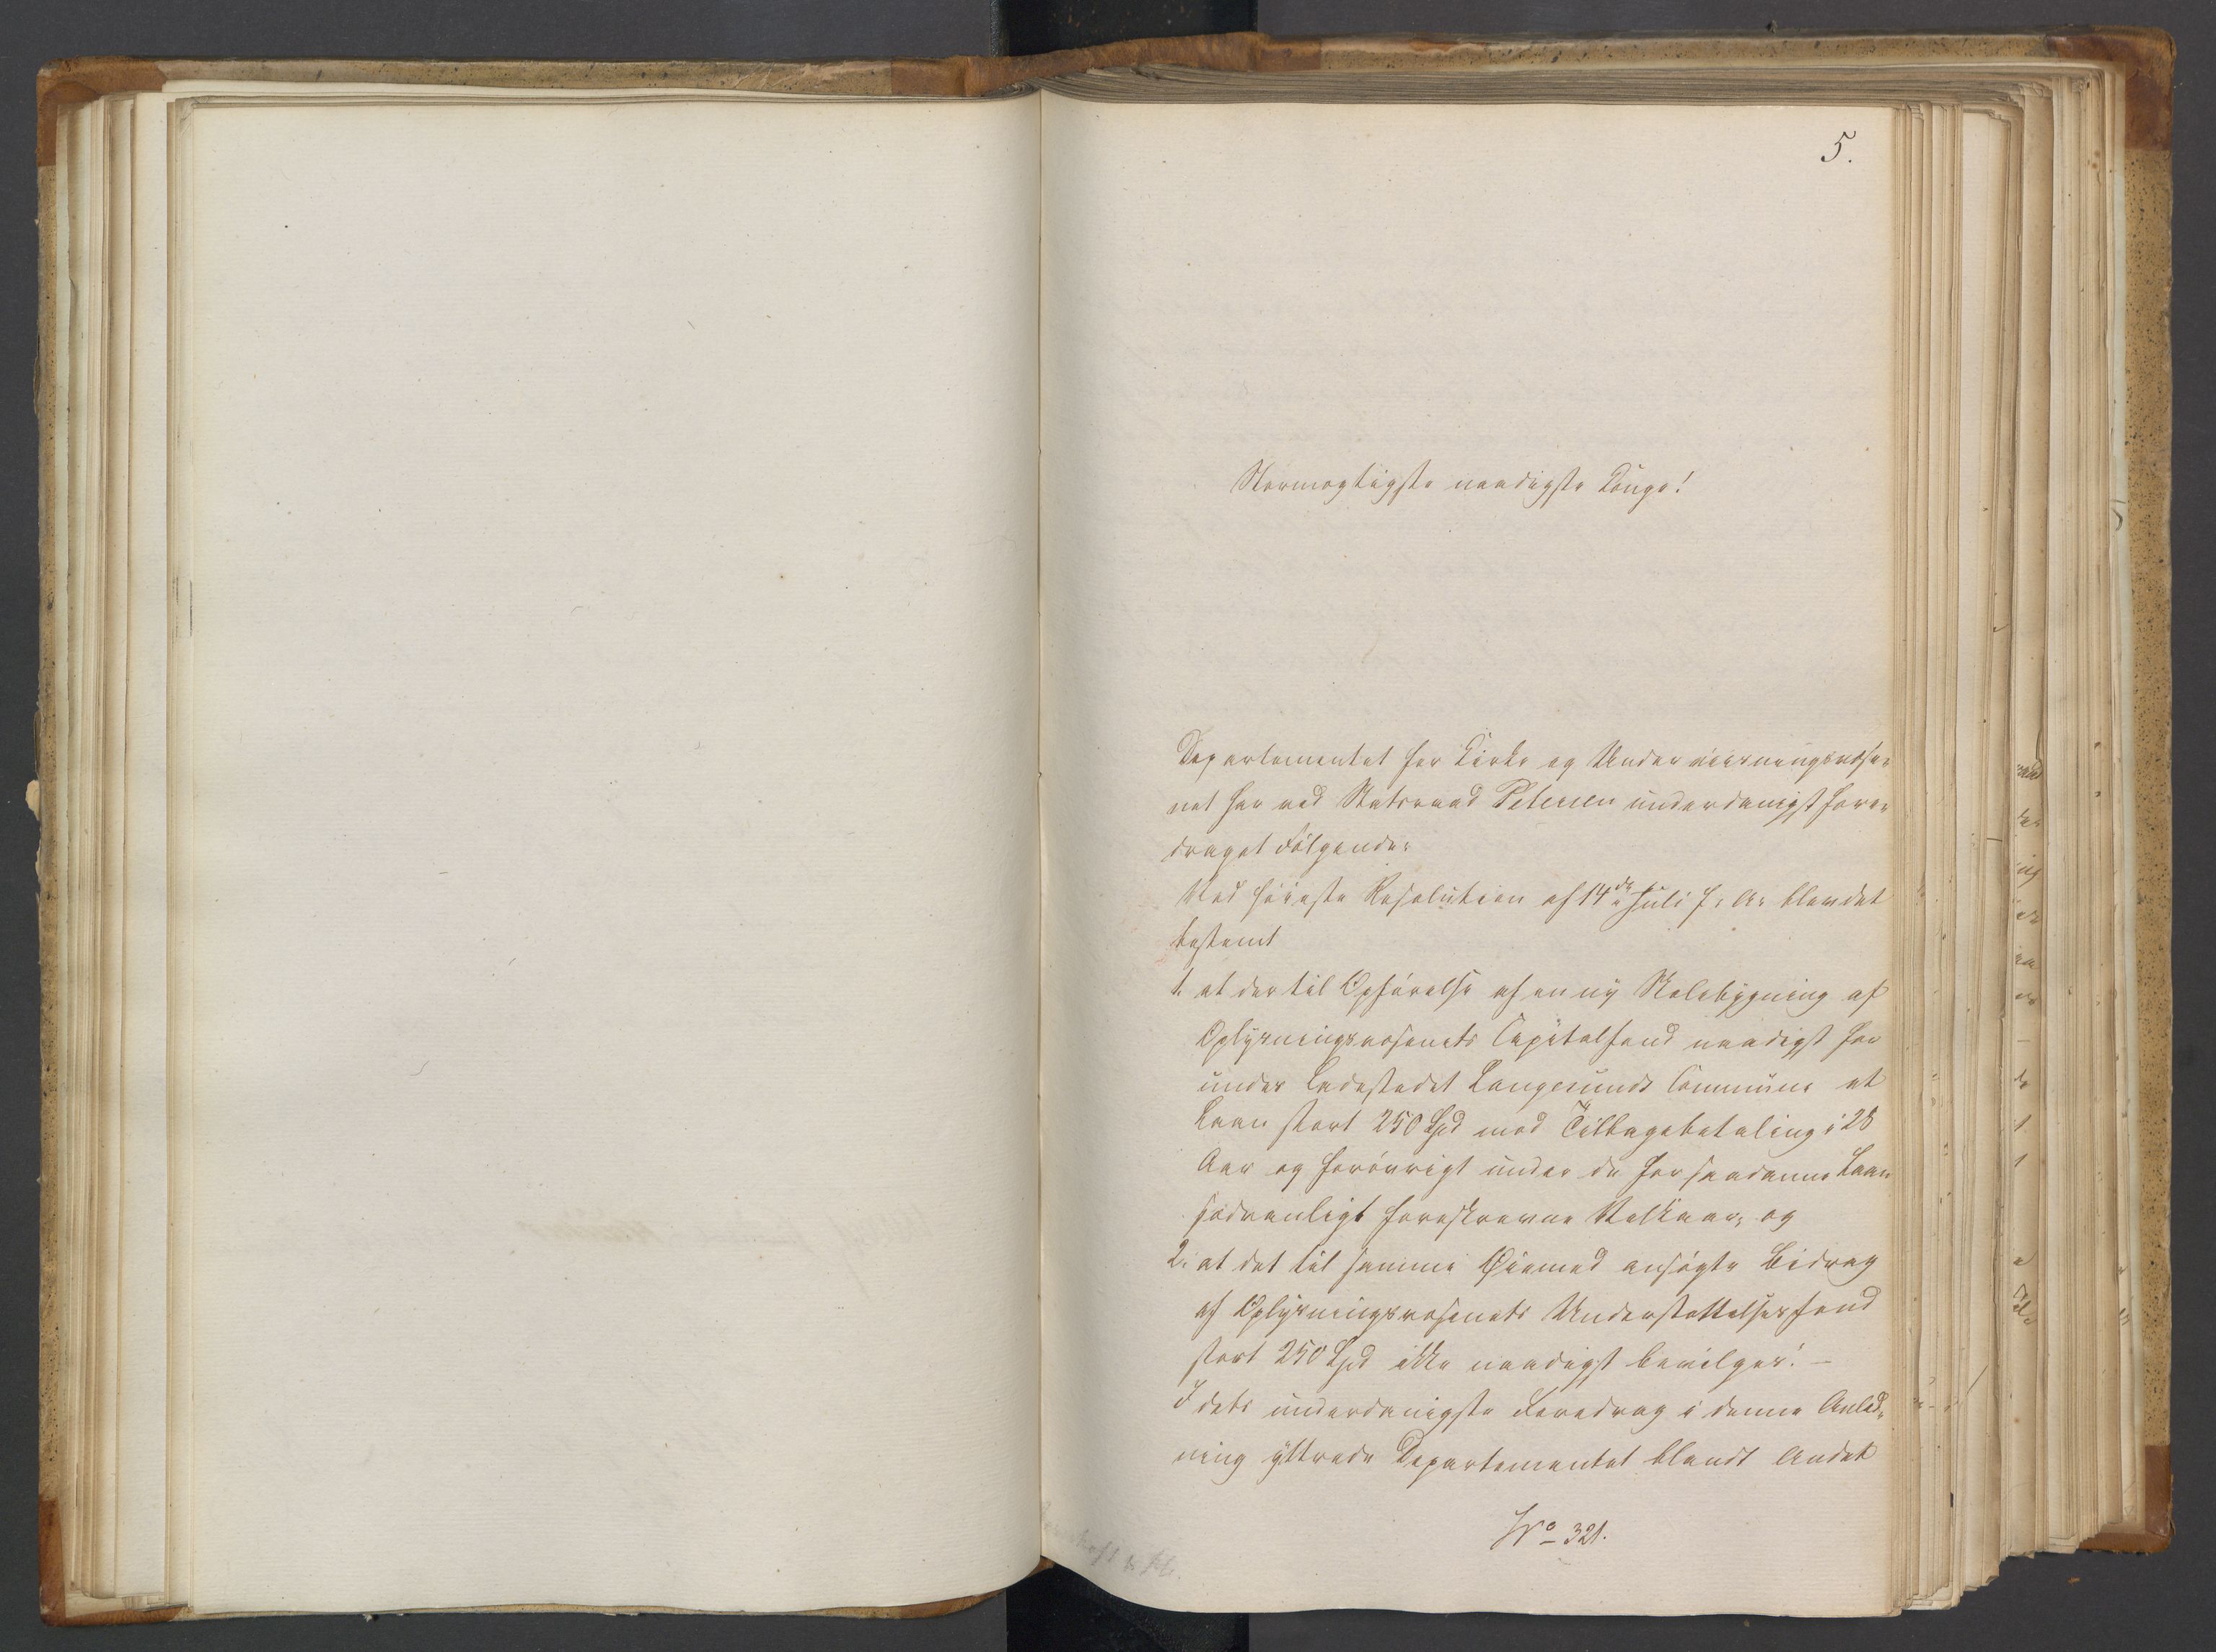 5.
Stormægtigste naadigste Konge!
Departementet for Kirke og Underviisningsvæse-
net har ved Statsraad Petersen underdanigst fore-
draget Følgende:
Ved høieste Resolution af 14de Juli f. A. blev det
bestemt
1. at der til Opførelse af en ny Skolebygning af
Oplysningsvæsenets Capitalfond naadigst for
under Ladestedet Langesunds Commune et
Laan stort 250 Spd mod Tilbagebetaling i 28
Aar og forøvrigt under de for saadanne Laan
sædvanligt foreskrevne Vilkaar, og
2. at det til samme Øiemed ansøgte Bidrag
af Oplysningsvæsenets Understøttelsesfond
stort 250 Spd ikke naadigst bevilges. -
I dets underdanigste Foredrag i denne Anled-
ning yttrede Departementet blandt Andet
No 321.